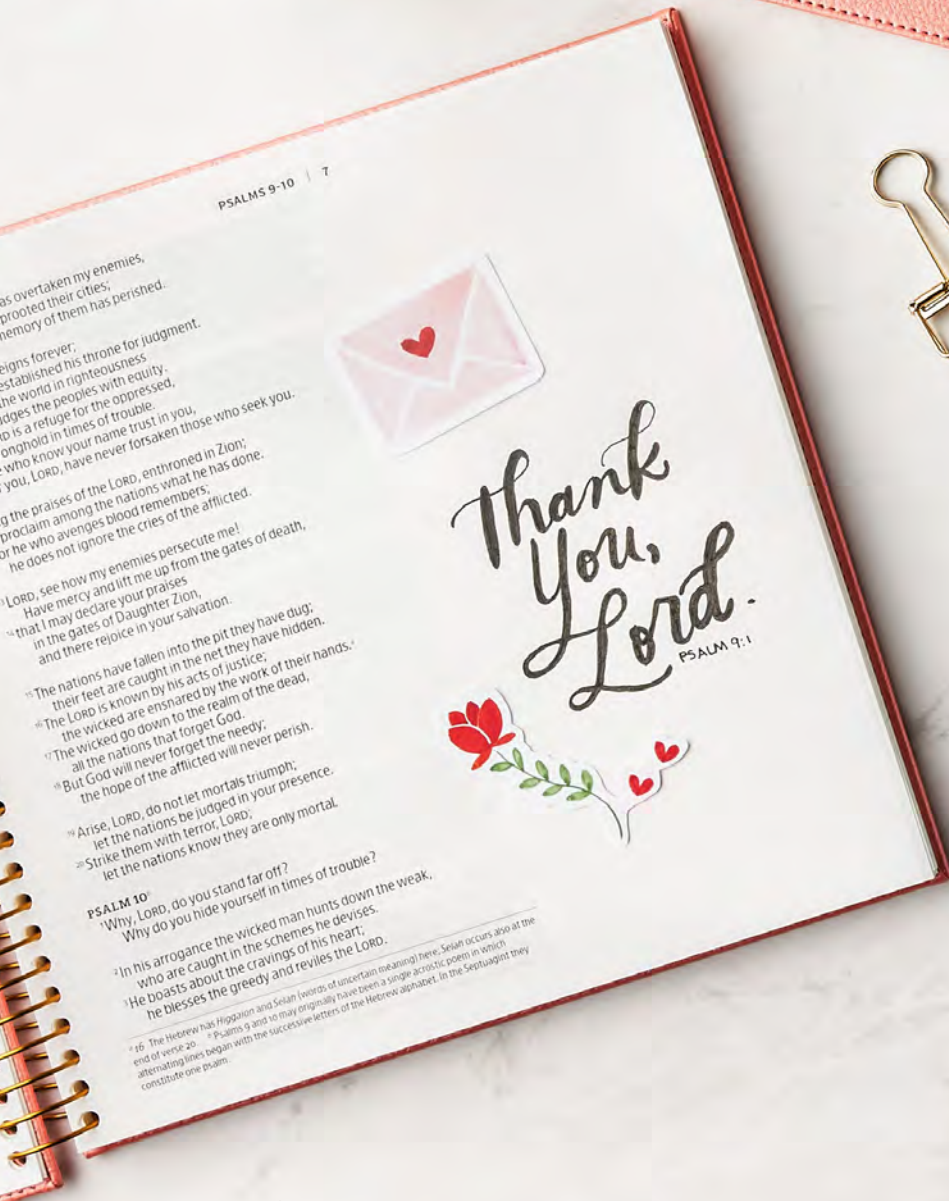 PSALMS 9-10 | 7
as overtaken my enemies,
prooted their cities;
memory of them has perished.
eigns forever;
established his throne for judgment.
the world in righteousness
dges the peoples with equity.
RD is a refuge for the oppressed,
onghold in times of trouble.
who know your name trust in you,
you, LORD, have never forsaken those who seek you.
g the praises of the LORD, enthroned in Zion;
proclaim among the nations what he has done.
or he who avenges blood remembers;
he does not ignore the cries of the afflicted.
LORD, see how my enemies persecute me!
Have mercy and lift me up from the gates of death,
14 that I may declare your praises
in the gates of Daughter Zion,
and there rejoice in your salvation.
15 The nations have fallen into the pit they have dug;
their feet are caught in the net they have hidden.
16 The LORD is known by his acts of justice;
the wicked are ensnared by the work of their hands.
17 The wicked go down to the realm of the dead,
all the nations that forget God.
18 But God will never forget the needy;
the hope of the afflicted will never perish.
19 Arise, LORD, do not let mortals triumph;
let the nations be judged in your presence.
20 Strike them with terror, LORD;
let the nations know they are only mortal.
PSALM 10
1 Why, LORD, do you stand far off?
Why do you hide yourself in times of trouble?
2 In his arrogance the wicked man hunts down the weak,
who are caught in the schemes he devises.
3 He boasts about the cravings of his heart;
he blesses the greedy and reviles the LORD.
16 The Hebrew has Higgaion and Selah (words of uncertain meaning) here; Selah occurs also at the
end of verse 20. Psalms 9 and 10 may originally have been a single acrostic poem in which
alternating lines began with the successive letters of the Hebrew alphabet. In the Septuagint they
constitute one psalm.
Thank
You,
Lord.
PSALM 9:1